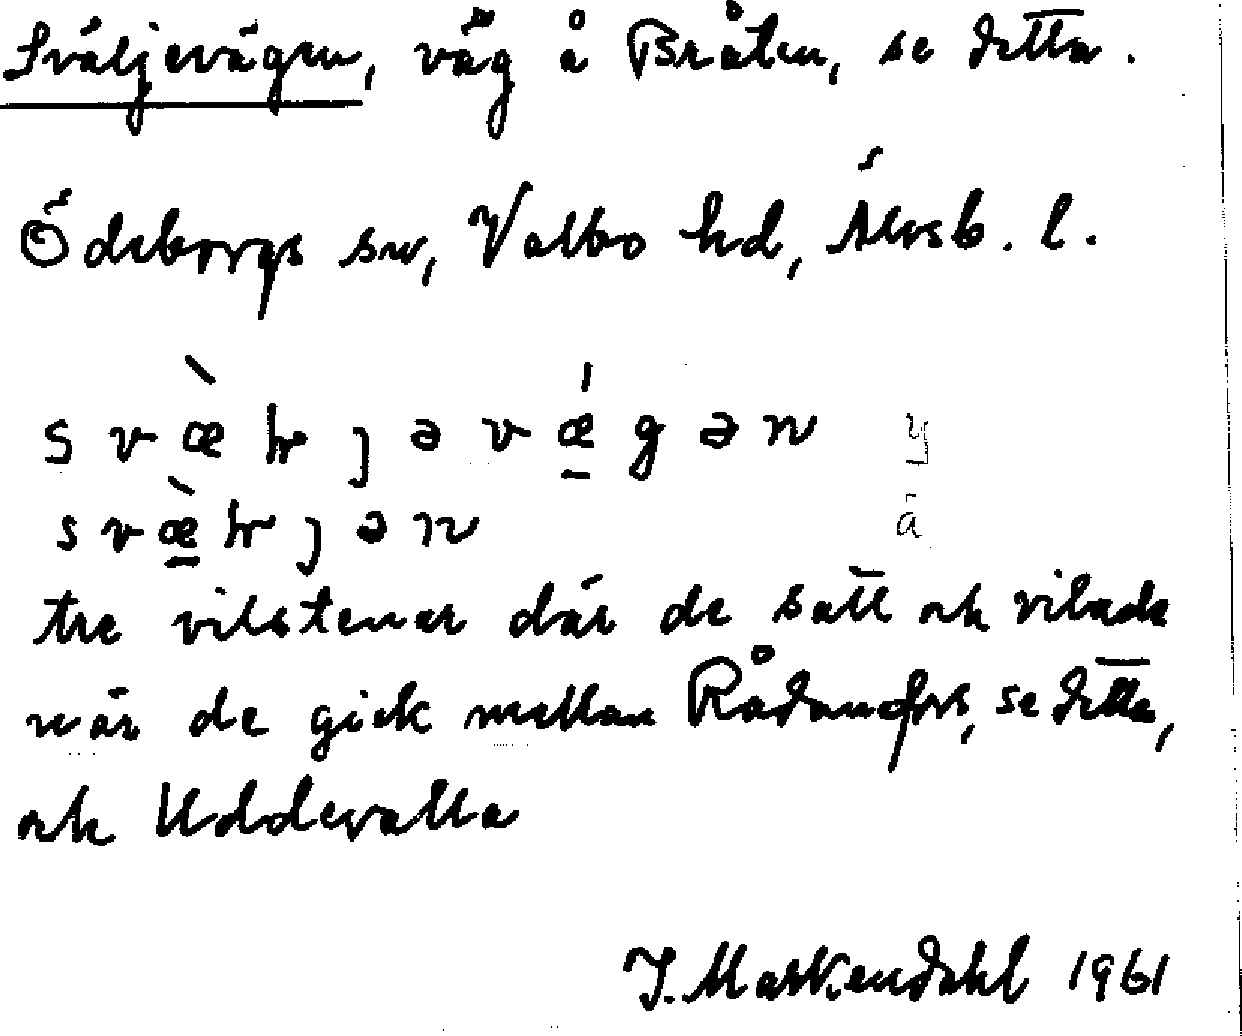 Sväljevägen, väg å Bråten, se detta.
Ödeborgs sn, Valbo hd, Älvsb. l.
s v æ̀ ȷ ə v ǽ g ə n y
s v æ̀ ȷ ə n a
tre vilstenar där de satt och vilade
när de gick mellan Rådanefors, se detta,
och Uddevalla
J. Markendahl 1961